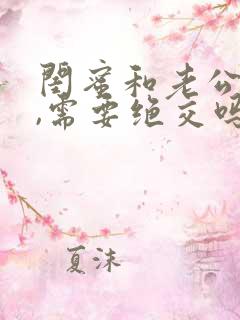 閨蜜和老公
,需要绝交吗
夏沫